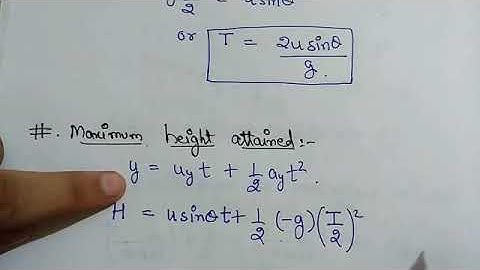 g T/2 = usinθ
or T = 2usinθ/g.
#. Maximum height attained:-
y = uyt + 1/2 ayt².
H = usinθt + 1/2 (-g)(T/2)²